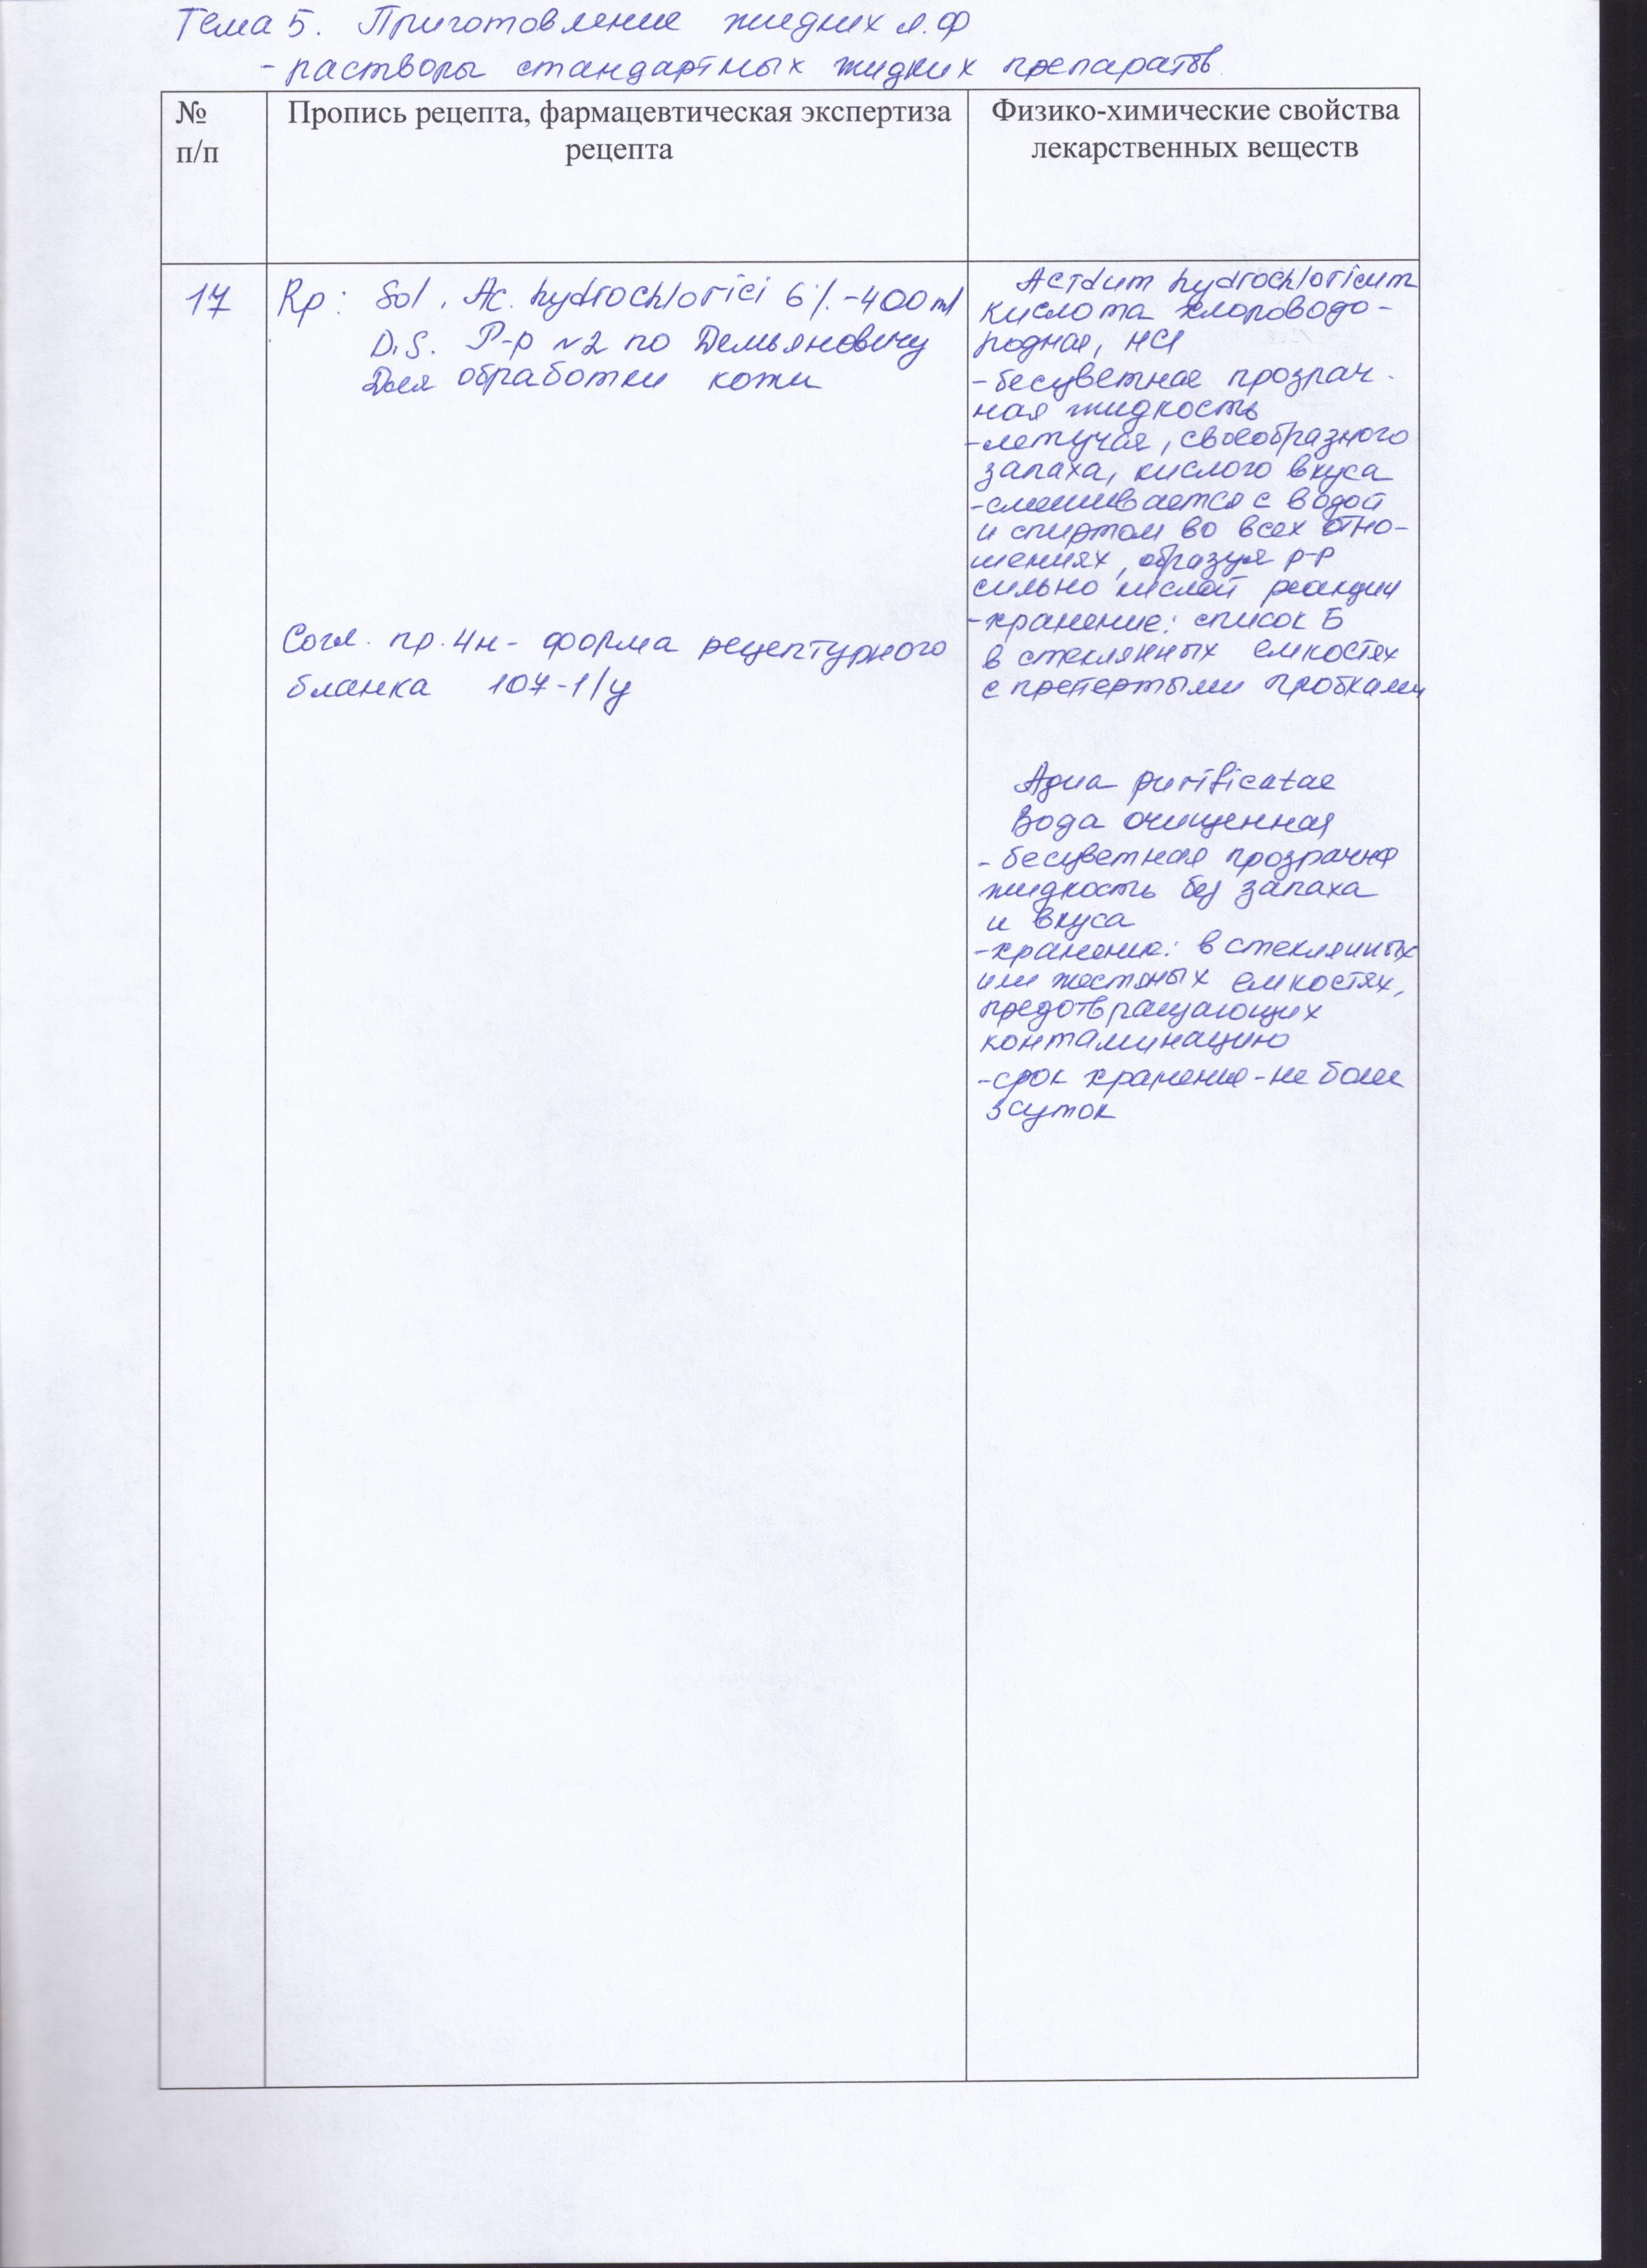 Тема 5. Приготовление жидких л.ф
- растворы стандартных жидких препаратов
№
п/п
Пропись рецепта, фармацевтическая экспертиза
рецепта
Физико-химические свойства
лекарственных веществ
17
Rp: Sol. Ac. hydrochlorici 6%.-400ml
D.S. Р-р №2 по Демьяновичу
Для обработки кожи
Согл. пр. 4н - форма рецептурного
бланка 107-1/у
Acidum hydrochloricum
кислота хлороводо-
родная, HCl
- бесцветная прозрач-
ная жидкость
- летучая, своеобразного
запаха, кислого вкуса
- смешивается с водой
и спиртом во всех отно-
шениях, образуя р-р
сильно кислой реакции
- хранение: список Б
в стеклянных емкостях
с претертыми пробками
Aqua purificatae
Вода очищенная
- бесцветная прозрачная
жидкость без запаха
и вкуса
- хранение: в стеклянных
или жестяных емкостях,
предотвращающих
контаминацию
- срок хранения - не более
3 суток